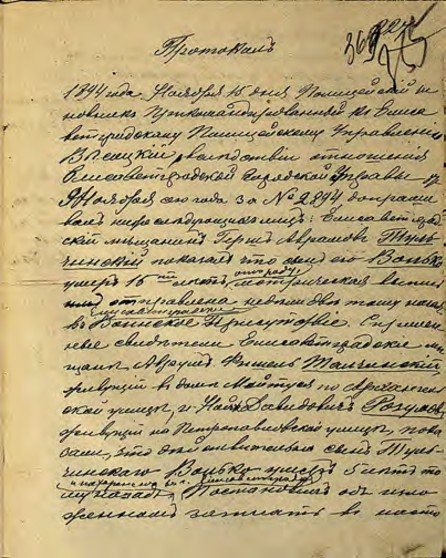 Протоколъ
1894 года Ноября 16 дня Полицейскій чи-
новникъ Прикомандированный къ Елиса-
ветградскому Полицейскому Управленію
вслѣдствіи отношенія
Елисаветградской Городской Управы
Ноября сего года за № 2894 допраши
валъ нижеслѣдующихъ лицъ: Елисаветград
скій мѣщанинъ Герш Аврамовъ Туль
чинскій показалъ что сынъ его Волько
умеръ 15 лѣтъ метрическая выпись
отправлена недели двѣ тому назадъ
въ Воинское Присутствіе. Спрошен
ные свидѣтели Елисаветградскіе мѣ
щане, Фишель Талчинскій,
живущій въ домѣ по Архангель
ской улицѣ, и Давидовъ
живущій на Петропавловской улицѣ, пока
зали, что дѣйствительно сынъ Туль
чинскаго Волько умеръ 5 лѣтъ то
му назадъ, Постановилъ объ изло
женномъ записать въ насто